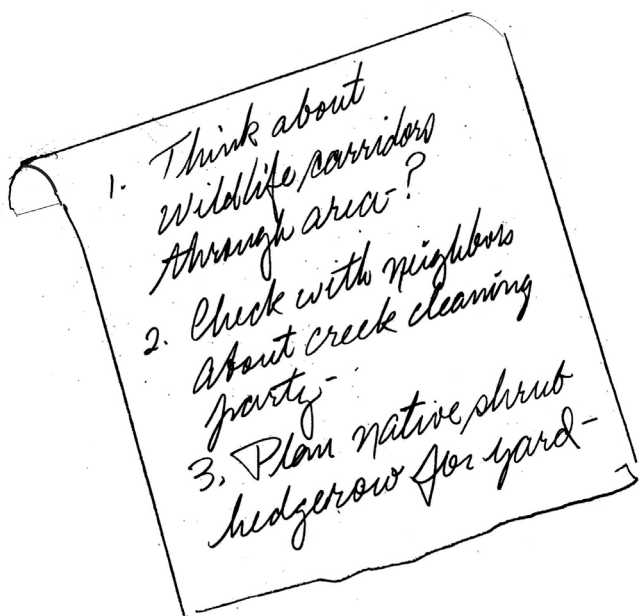 1. Think about
wildlife corridors
through area-?
2. Check with neighbors
about creek cleaning
party-
3. Plan native shrub
hedgerow for yard-